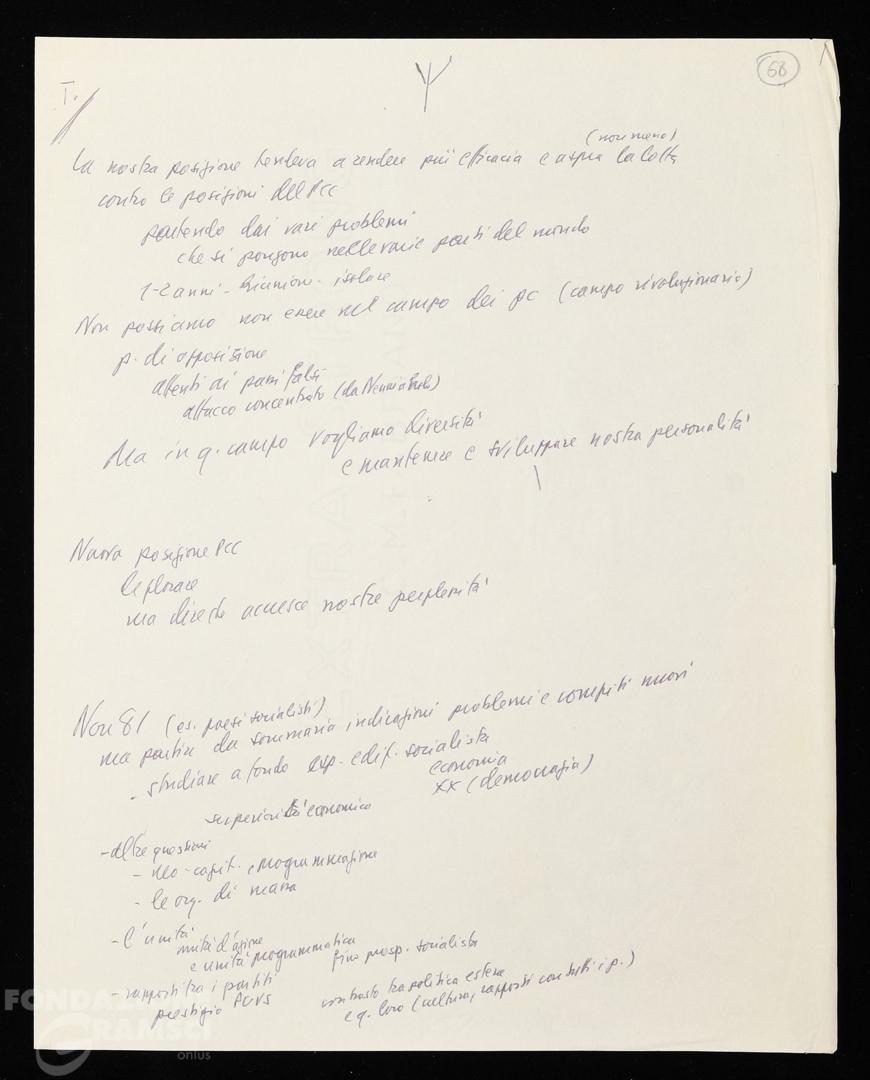 68
I.
(non meno)
La nostra posizione tendeva a rendere più efficacia e aspra la lotta
contro le posizioni del PCC
partendo dai vari problemi
che si pongono nelle varie parti del mondo
1-2 anni - riunione - isolare
Non possiamo non essere nel campo dei pc (campo rivoluzionario)
p. di opposizione
attenti ai passi falsi
attacco concentrato (da Neumai
Ma in q. campo vogliamo diversità
e mantenere e sviluppare nostra personalità
Nuova posizione PCC
esplorare
ma direste accresce nostre perplessità
Non 81 (es. paesi socialisti)
ma partire da sommaria indicazioni problemi e compiti nuovi
- studiare a fondo esp. edif. socialista
economia
XX (democrazia)
superiorità economico
- altre questioni
- neo-capit. e programmazione
- le org. di massa
- l'unità
unità d'azione
e unità programmatica
fino prosp. socialista
- rapporti tra i partiti
prestigio PCUS
contrasto tra politica estera
e q. loro (cultura, rapporti con tutti i p.)
FONDAZIONE
GRAMSCI
onlus